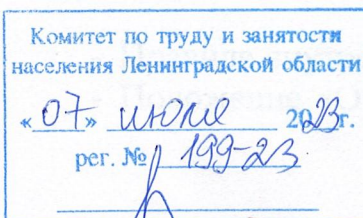 Комитет по труду и занятости
населения Ленинградской области
«07» июля 2023г.
рег. № 199-23